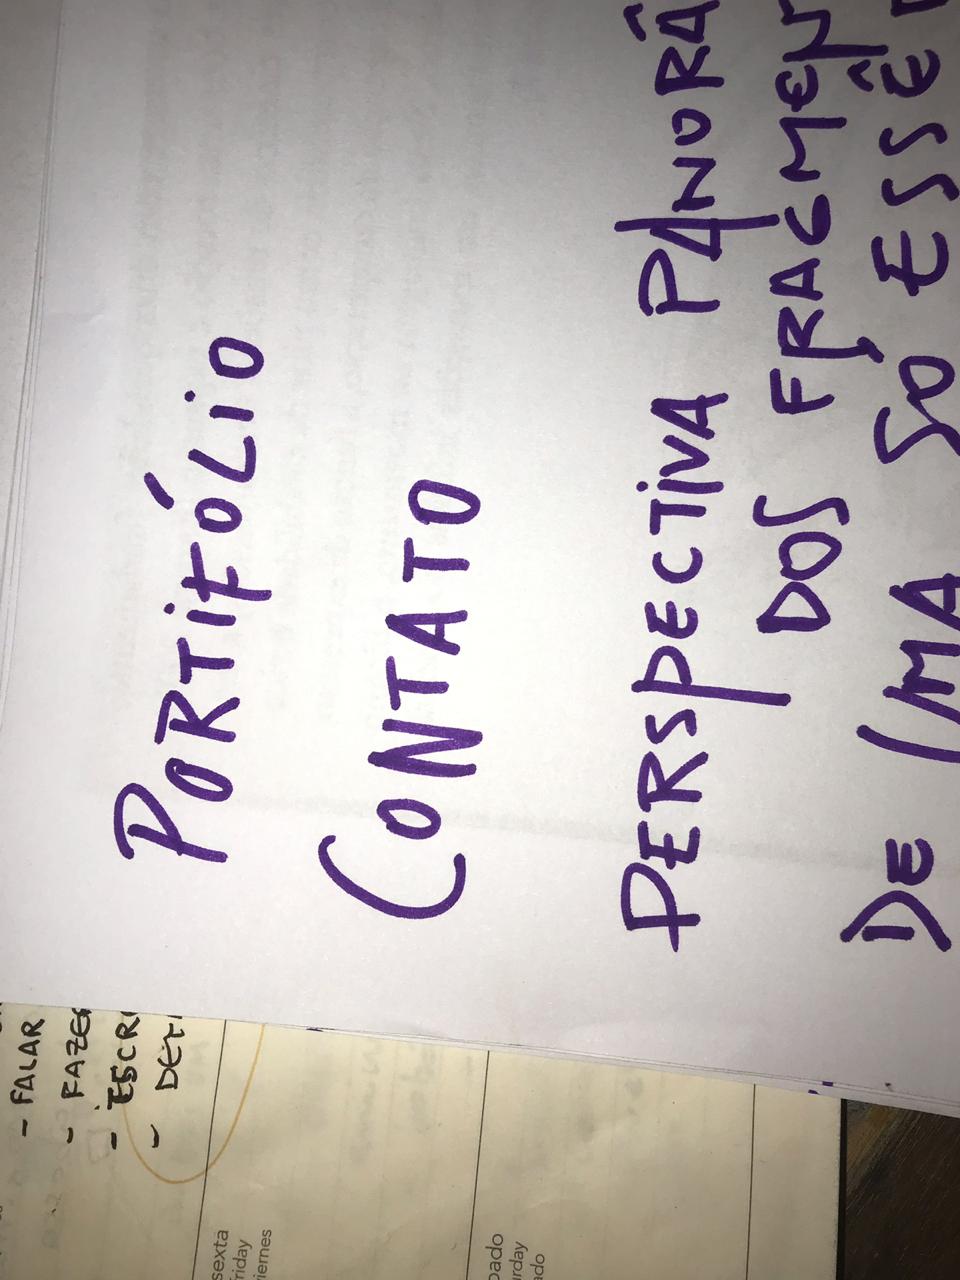 PORTIFÓLIO
CONTATO
PERSPECTIVA PANORÂ
DOS FRAGMEN
DE (MA SO ESSÊ
- FALAR
- FAZER
- ESCR
- DET
sexta
friday
viernes